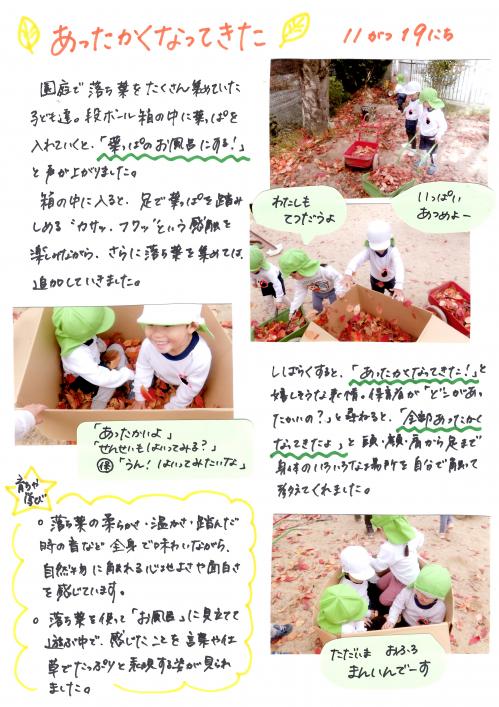 あったかくなってきた
11がつ19にち
園庭で落ち葉をたくさん集めていた
子ども達。段ボール箱の中に葉っぱを
入れていくと、「葉っぱのお風呂にする！」
と声が上がりました。
箱の中に入ると、足で葉っぱを踏み
しめる“カサッ、フワッ”という感触を
楽しみながら、さらに落ち葉を集めては、
追加していきました。
わたしも
てつだうよ
いっぱい
あつめよー
「あったかいよ」
「せんせいもはいってみる？」
保「うん！はいってみたいな」
しばらくすると、「あったかくなってきた！」と
嬉しそうな表情。保育者が「どこがあっ
たかいの？」と尋ねると、「全部あったかく
なってきたよ」と頭・顔・肩から足まで
身体のいろいろな場所を自分で触って
教えてくれました。
育ちや
学び
○落ち葉の柔らかさ・温かさ・踏んだ
時の音など全身で味わいながら、
自然物に触れる心地よさや面白さ
を感じています。
○落ち葉を使って「お風呂」に見立てて
遊ぶ中で、感じたことを言葉や仕
草でたっぷりと表現する姿が見られ
ました。
ただいま おふろ
まんいんでーす